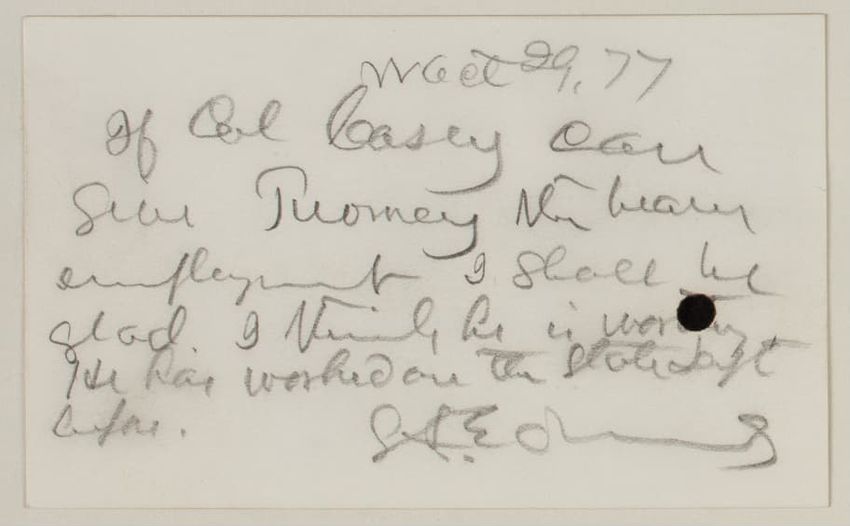 Oct 29, 77
If Col Casey can
give Tuomey the bearer
employment I shall be
glad. I think he is worthy
He has worked on the State Dept
before.
G. F. Edmunds